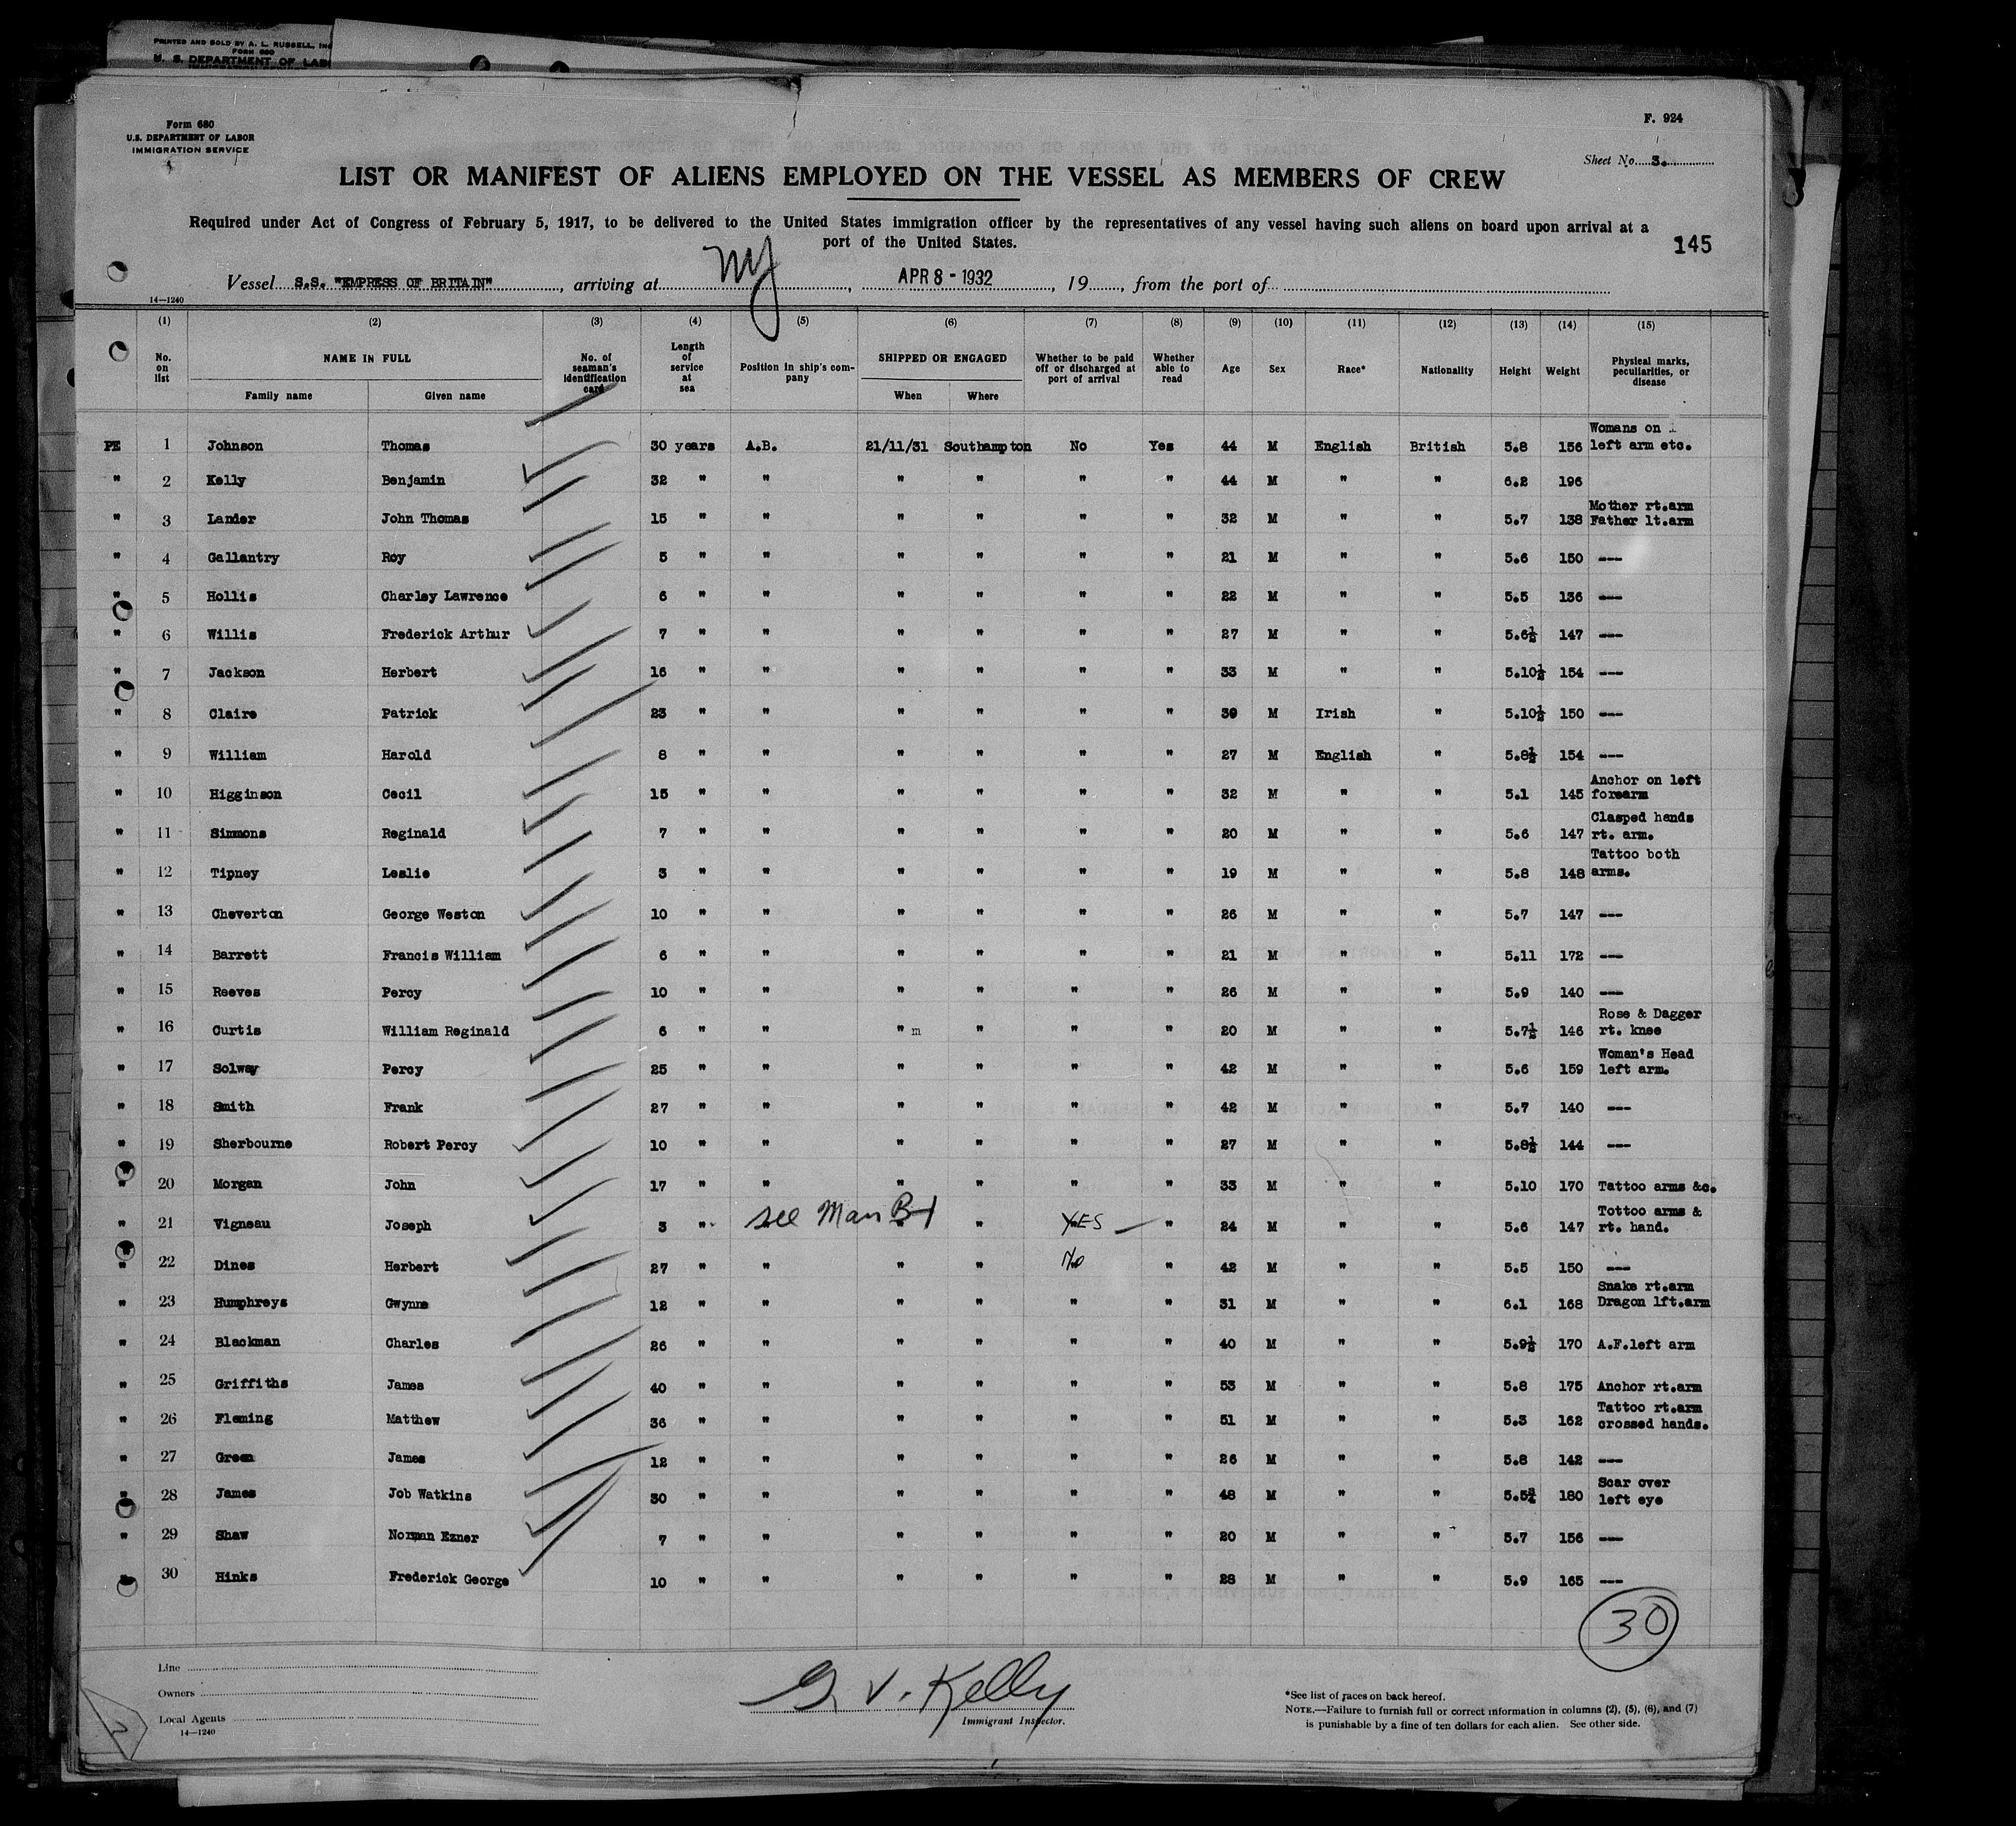 PRINTED AND SOLD BY A. L. RUSSELL, INC
FORM 680
U. S. DEPARTMENT OF LAB
Form 680
U.S. DEPARTMENT OF LABOR
IMMIGRATION SERVICE
F. 924
Sheet No. 3.
LIST OR MANIFEST OF ALIENS EMPLOYED ON THE VESSEL AS MEMBERS OF CREW
Required under Act of Congress of February 5, 1917, to be delivered to the United States immigration officer by the representatives of any vessel having such aliens on board upon arrival at a
port of the United States.
145
Vessel S.S. "EMPRESS OF BRITAIN", arriving at NY, APR 8 - 1932, 19, from the port of
14—1240
(1) (2) (3) (4) (5) (6) (7) (8) (9) (10) (11) (12) (13) (14) (15)
No. on list NAME IN FULL Family name Given name No. of seaman's identification card Length of service at sea Position in ship's company SHIPPED OR ENGAGED When Where Whether to be paid off or discharged at port of arrival Whether able to read Age Sex Race* Nationality Height Weight Physical marks, peculiarities, or disease
PE 1 Johnson Thomas 30 years A.B. 21/11/31 Southampton No Yes 44 M English British 5.8 156 Womans on left arm etc.
" 2 Kelly Benjamin 32 " " " " " " 44 M " " 6.2 196
" 3 Lander John Thomas 15 " " " " " " 32 M " " 5.7 138 Mother rt.arm Father lt.arm
" 4 Gallantry Roy 5 " " " " " " 21 M " " 5.6 150 ---
" 5 Hollis Charley Lawrence 6 " " " " " " 22 M " " 5.5 136 ---
" 6 Willis Frederick Arthur 7 " " " " " " 27 M " " 5.6½ 147 ---
" 7 Jackson Herbert 16 " " " " " " 33 M " " 5.10½ 154 ---
" 8 Claire Patrick 23 " " " " " " 39 M Irish " 5.10½ 150 ---
" 9 William Harold 8 " " " " " " 27 M English " 5.8½ 154 ---
" 10 Higginson Cecil 15 " " " " " " 32 M " " 5.1 145 Anchor on left forearm
" 11 Simmons Reginald 7 " " " " " " 20 M " " 5.6 147 Clasped hands rt. arm.
" 12 Tipney Leslie 3 " " " " " " 19 M " " 5.8 148 Tattoo both arms.
" 13 Cheverton George Weston 10 " " " " " " 26 M " " 5.7 147 ---
" 14 Barrett Francis William 6 " " " " " " 21 M " " 5.11 172 ---
" 15 Reeves Percy 10 " " " " " " 26 M " " 5.9 140 ---
" 16 Curtis William Reginald 6 " " " m " " " 20 M " " 5.7½ 146 Rose & Dagger rt. knee
" 17 Solway Percy 25 " " " " " " 42 M " " 5.6 159 Woman's Head left arm.
" 18 Smith Frank 27 " " " " " " 42 M " " 5.7 140 ---
" 19 Sherbourne Robert Percy 10 " " " " " " 27 M " " 5.8½ 144 ---
" 20 Morgan John 17 " " " " " " 33 M " " 5.10 170 Tattoo arms &c.
" 21 Vigneau Joseph 3 " see Man " YES — " 24 M " " 5.6 147 Tottoo arms & rt. hand.
" 22 Dines Herbert 27 " " " " No " 42 M " " 5.5 150 ---
" 23 Humphreys Gwynne 12 " " " " " " 31 M " " 6.1 168 Snake rt.arm Dragon lft.arm
" 24 Blackman Charles 26 " " " " " " 40 M " " 5.9½ 170 A.F.left arm
" 25 Griffiths James 40 " " " " " " 53 M " " 5.8 175 Anchor rt.arm
" 26 Fleming Matthew 36 " " " " " " 51 M " " 5.3 162 Tattoo rt.arm crossed hands.
" 27 Green James 12 " " " " " " 26 M " " 5.8 142 ---
" 28 James Job Watkins 30 " " " " " " 48 M " " 5.5¾ 180 Scar over left eye
" 29 Shaw Norman Ezner 7 " " " " " " 20 M " " 5.7 156 ---
" 30 Hinks Frederick George 10 " " " " " " 28 M " " 5.9 165 ---
30
Line
Owners
Local Agents
14—1240
G. V. Kelly
Immigrant Inspector.
*See list of races on back hereof.
NOTE.—Failure to furnish full or correct information in columns (2), (5), (6), and (7)
is punishable by a fine of ten dollars for each alien. See other side.
2